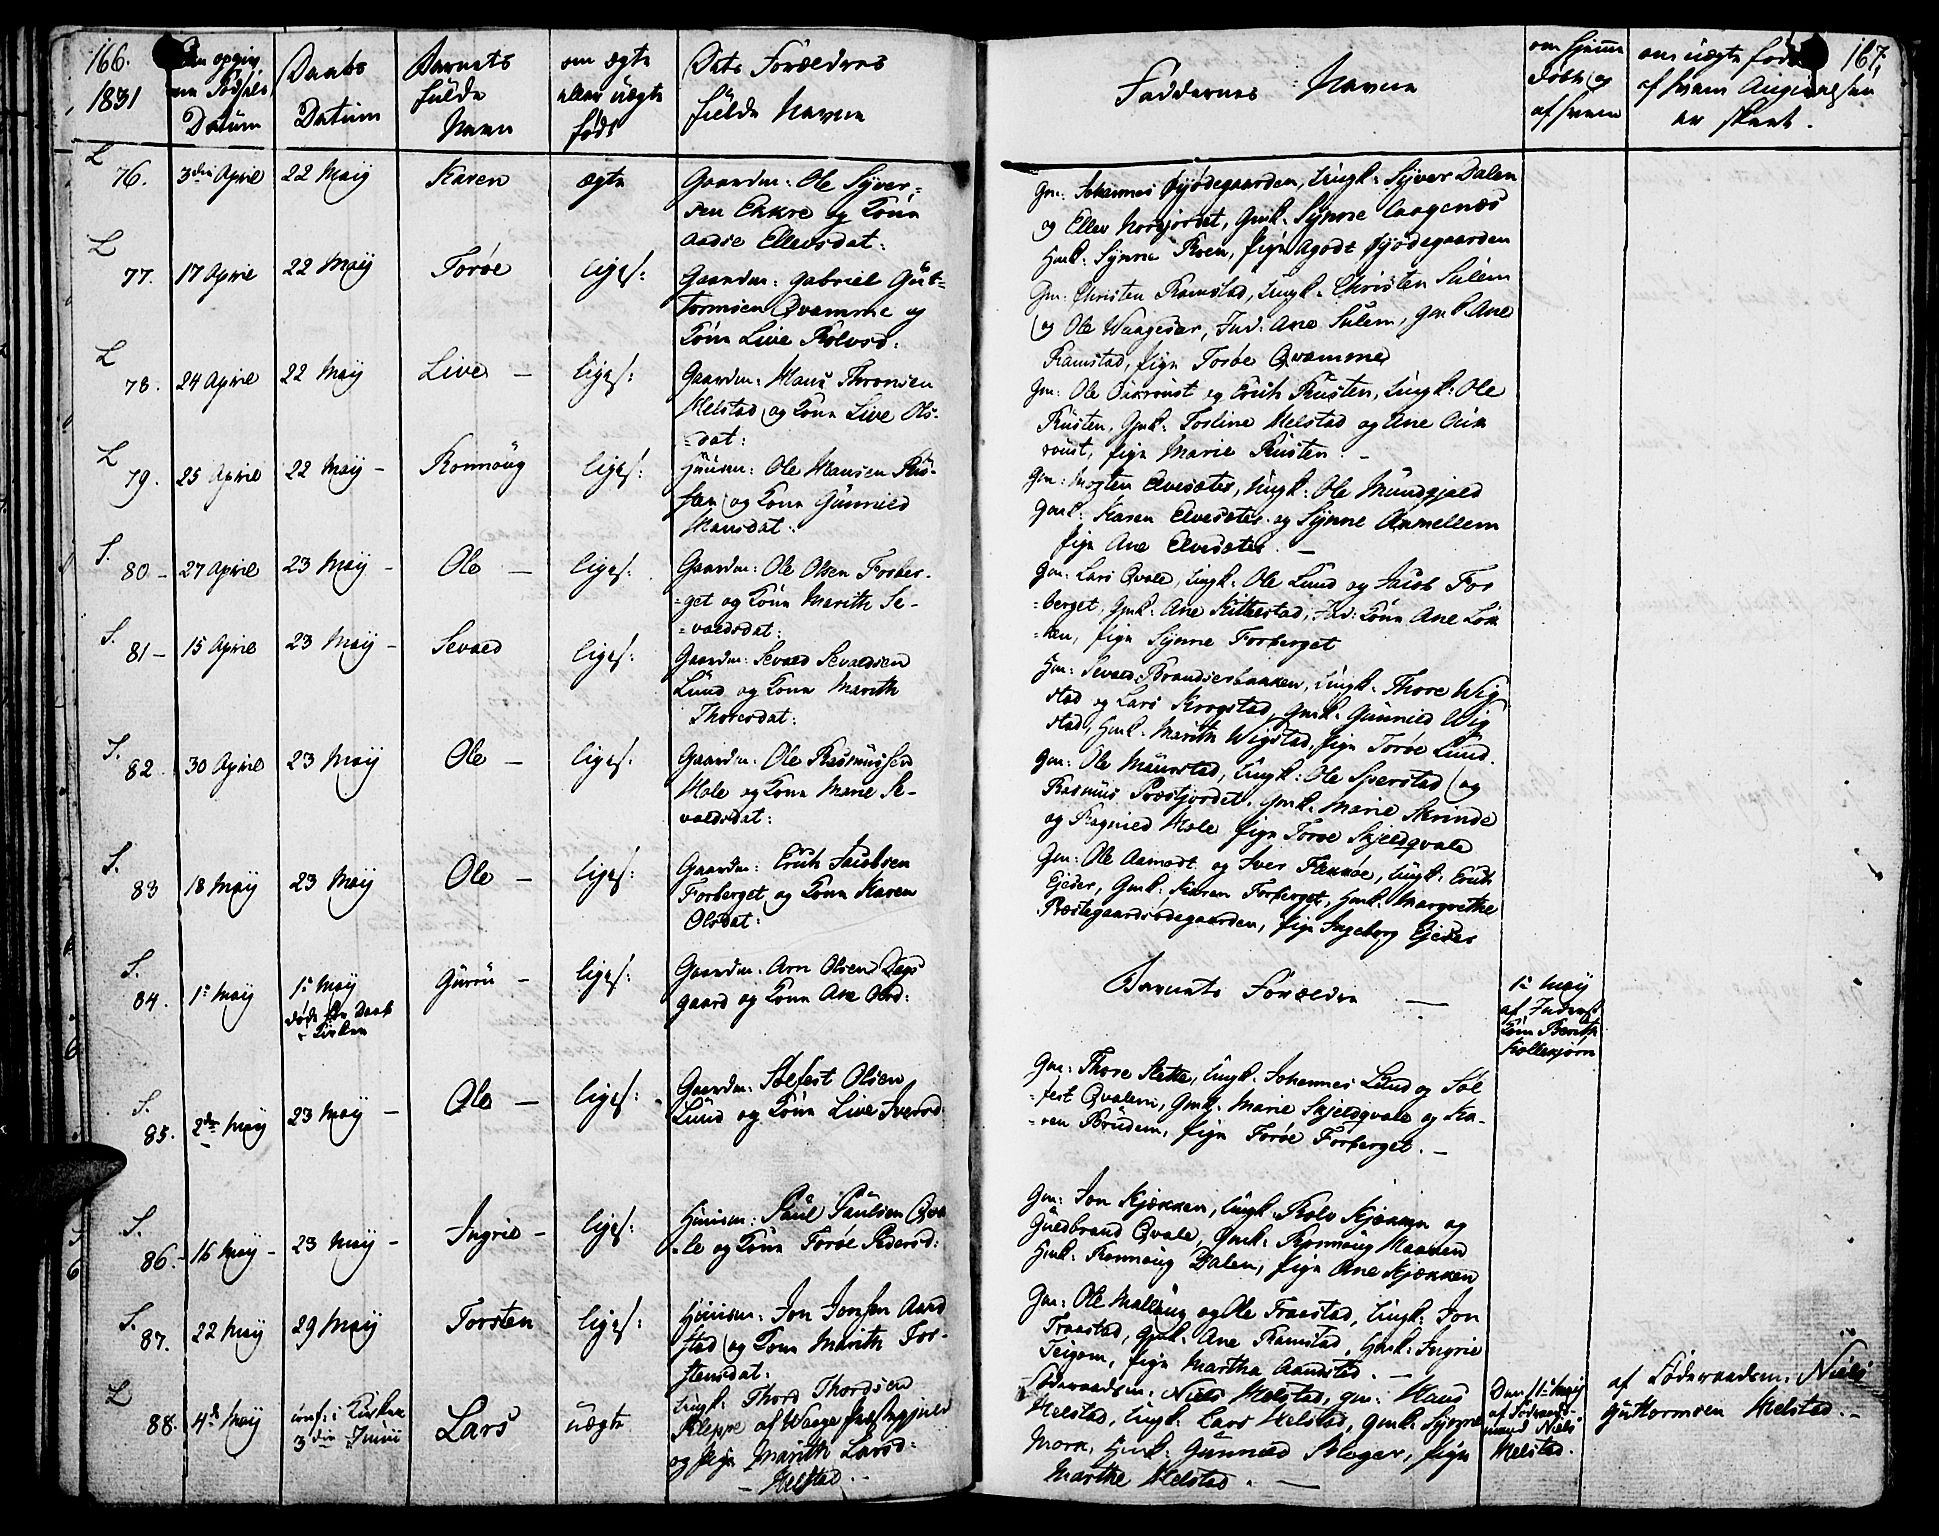 166.
1831
Datum
Daabs
Datum
Barnets
fulde
Navn
om ægte
eller uægte
født
Dets Forældres
fulde Navne
Faddernes Navne
om hjemme
døbt og
af hvem
om uægte født
af hvem Angivelsen
er skeet.
167,
L
76. 3die April 22 Maij Karen ægte
Gaardm: Ole Syver-
sen Ekkre og Kone
Ellevsdat:
Gm: Johannes Øyødegaarden, Ungk: Syver Dalen
og Ellev Norjordet, Gmk. Synne
Hmk: Synne Roen, Pign Agodt Øyødegaarden
L
77. 17 April 22 Maij Toroe liges:
Gaardm: Gabriel Gut-
tormsen Qvamme og
Kone Live Rolvsd:
Gm: Christen Ramstad, Ungk. Christen Sulem
og Ole Waagedar, Ind: Ane Sulem, Gmk Ane
Ramstad, Pign Toroe Qvamme
L
78. 24 April 22 Maij Live – liges:
Gaardm: Hans Thronsen
Melstad og Kone Live Ols-
-dat:
Gm: Ole og Erich Rusten, Ungk: Ole
Rusten, Gmk: Torline Melstad og Ane
Pign Marie Rusten –
L
79. 25 April 22 Maij – Ronnoug liges:
Huusm: Ole Hansen
og Kone Gunnild
Hansdat:
Gm: Mogten Elvesæter, Ungk: Ole Mundhjeld
Gmk: Karen Elvesæter og Synne
Pign Ane Elvesæter. –
S.
80 – 27 April 23 Maij – Ole – liges:
Gaardm: Ole Olsen Forber-
-get og Kone Marith Se-
-valdsdat:
Gm: Lars Qvale, Ungk: Ole Lund og Jacob For
-berget, Gmk: Ane Kittestad, Ind: Kone Ane Løk
-ken, Pign Synne Forberget
S.
81 – 15 April 23 Maij – Sevald liges:
Gaardm: Sevald Sevaldsen
Lund og Kone Marith
Thoresdat:
Hm: Sevald Brandserbakken, Ungk: Thore Wig
stad og Lars Krogstad, Gmk: Gunnild Wig
stad, Hmk. Marith Wigstad, Pign Toroe Lund.
S.
82. 30 April 23 Maij Ole – liges:
Gaardm: Ole Rasmussen
Hole og Kone Marie Se-
valdsdat:
Gm: Ole Maurstad, Ungk: Ole Sperstad og
Rasmus Præstjordet. Gmk: Marie Skrinde
og Ragnild Hole Pign Toroe Skjeldqvale
S.
83 18 Maij 23 Maij Ole – liges:
Gaardm: Erich Jacobsen
Forberget og Kone Karen
Olsdat:
Gm: Ole Aamodt og Iver Flækøe, Ungk: Erich
Gjeder, Gmk: Karen Forberget, Hmk: Margrethe
Præstegaardsødegaarden, Pign Ingeborg Gjeder
S.
84. 1ste Maij 1ste Maij
døde før Daab
i Kirken
Guroe – liges:
Gaardm: Arn Olsen
gaard og Kone Ane Olsd:
Barnets Forældre –
1ste Maij
af Inderst
Kone Berith
Kollekjørn
S.
85. 2den Maij 23 Maij – Ole – liges: –
Gaardm: Solfest Olsen
Lund og Kone Live Iversd.
Gm: Thore Slette, Ungk: Johannes Lund og Sol
-fest Qvalem, Gmk: Marie Skjeldqvale og Ka-
-ren Bruden, Pign Toroe Forberget. –
S.
86. – 16 Maij – 23 Maij – Ingrie – liges:
Huusm: Paul Paulsen Qva
-le og Kone Toroe Pedersd:
Gm: Jon Kjækken, Ungk: Rolv Kjækken og
Guldbrand Qvale, Gmk: Ronnoug Maanen
Hmk: Ronnoug Dalen, Pign Ane Kjækken
S.
87. 22 Maij 29 Maij Torsten liges:
Huusm: Jon Jonsen Aand
stad og Kone Marith Tor-
stensdat:
Gm: Ole Malloug og Ole Fraastad, Ungk: Jon
Fraastad, Gmk: Ane Ramstad, Hmk: Ingrie
Teigom, Pign Martha Aandstad. –
L
88. 4de Maij i Kirken
3die Junii
Lars uægte
Ungk: Thord Thordsen
Kleppe af Waage Præstegjeld
og Pign Marith Larsd:
– Melstad. –
Niels Melstad, Gm: Hans
Melstad, Ungk: Lars Melstad, Gmk: Synne
Mork, Hmk: Gunnild Bleger, Pign
Marthe Melstad. –
Den 11te Maij
Niels
Melstad.
af Niels
Guttormsen Melstad. –